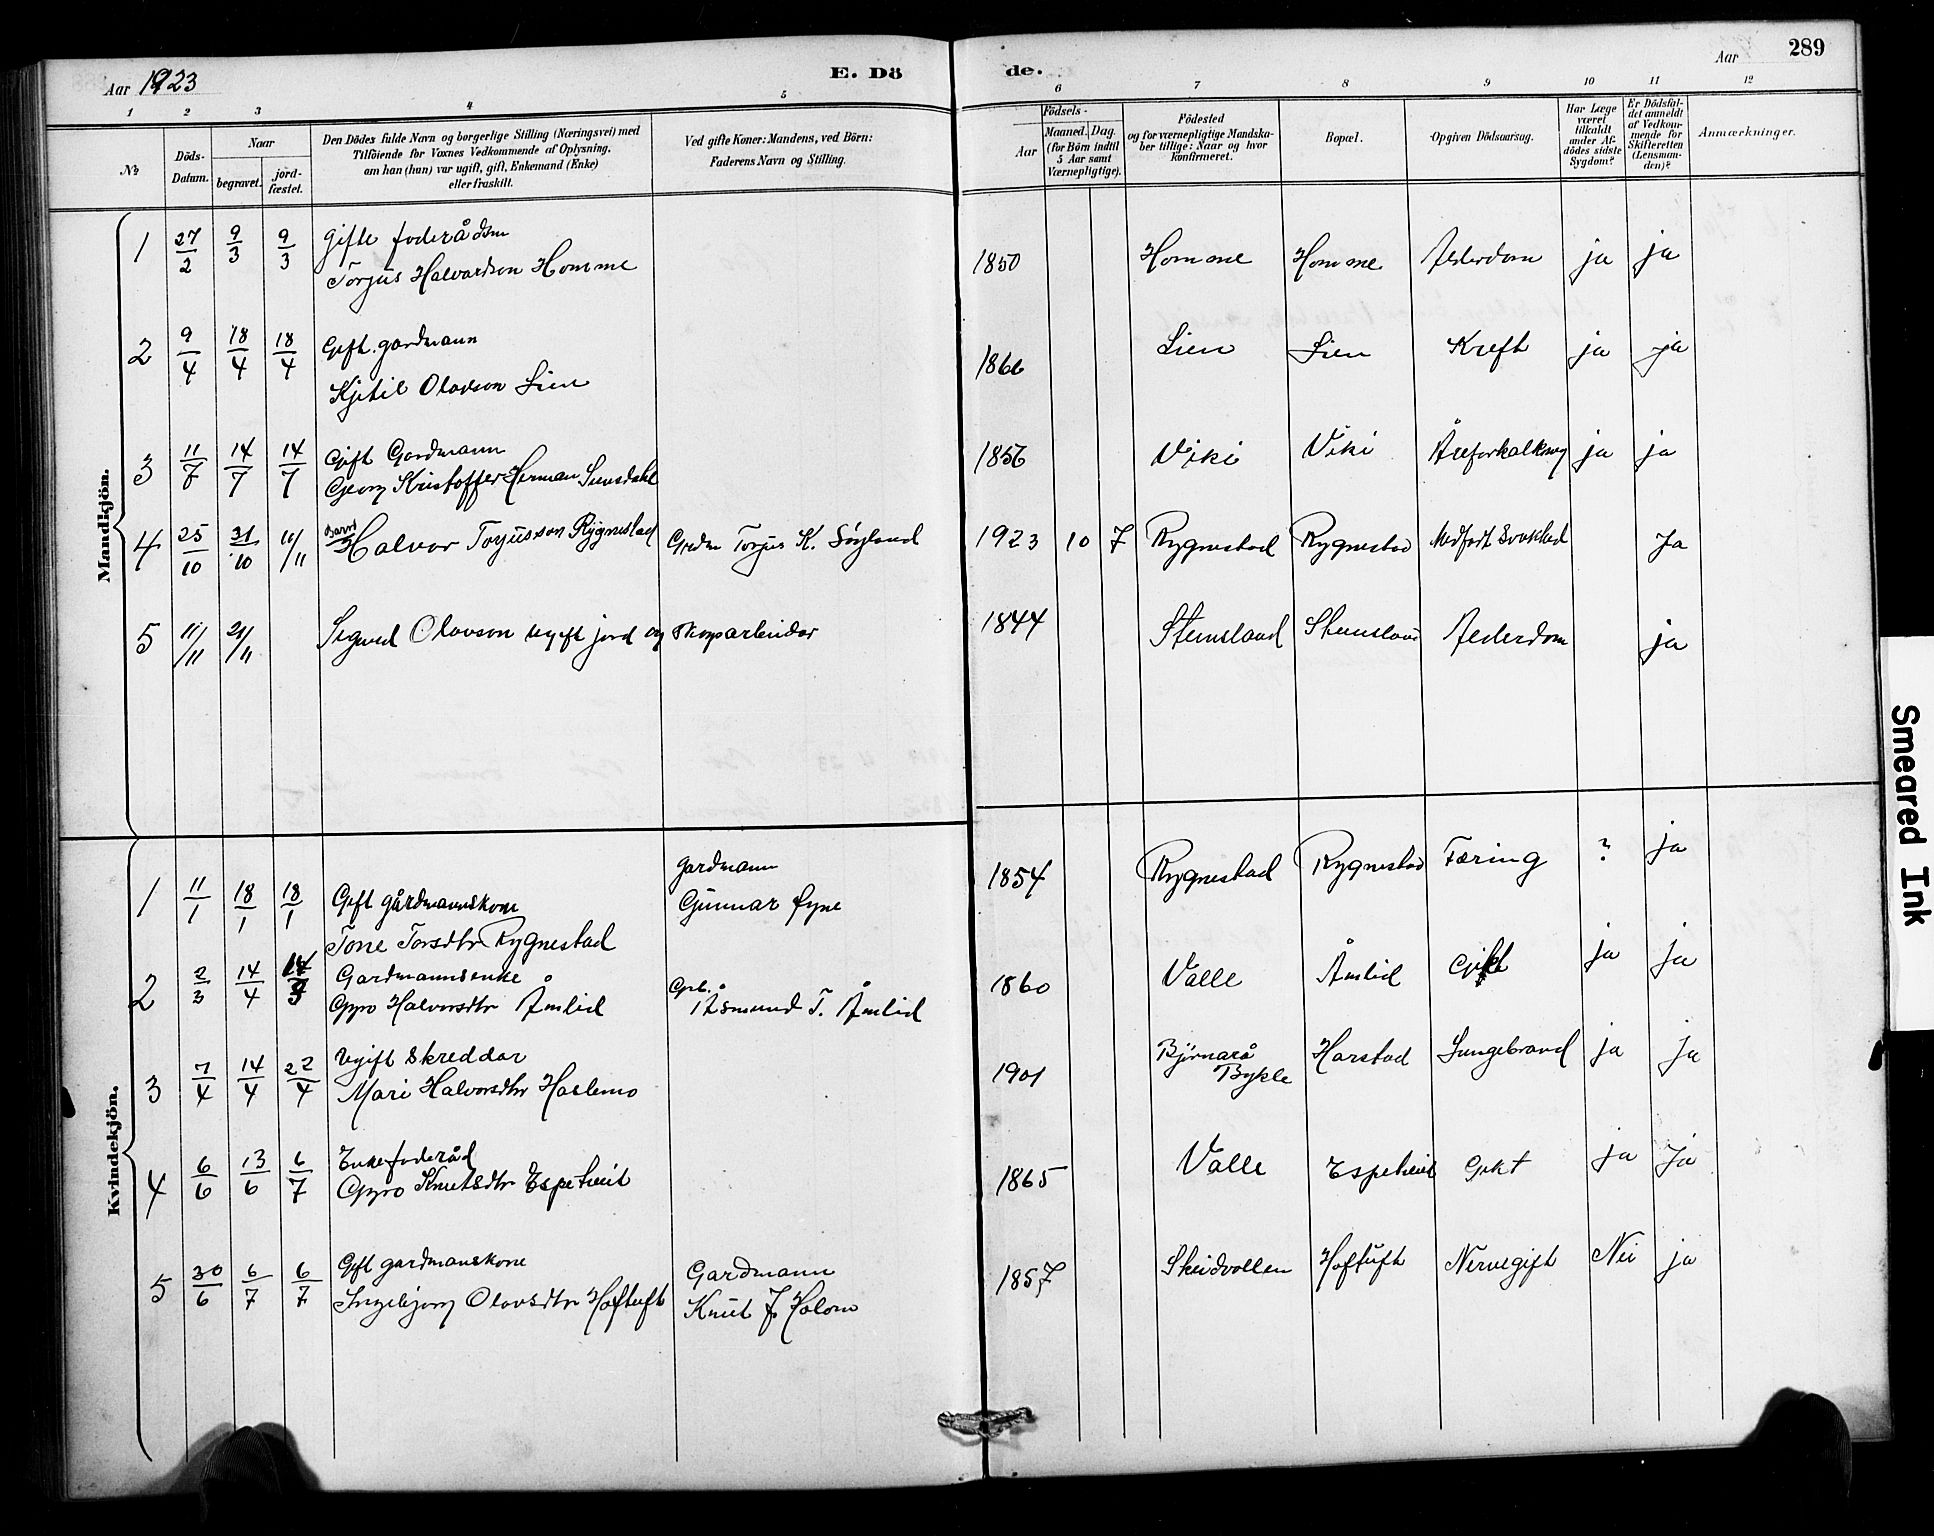 289
Aar 1923
E. Dö
de.
Aar
1 2 3 4 5 6 7 8 9 10 11 12
№
Döds-Datum.
Naar
begravet.
jord-fæstet.
Den Dödes fulde Navn og borgerlige Stilling (Næringsvei) med
Tilföiende for Voxnes Vedkommende af Oplysning,
om han (hun) var ugift, gift, Enkemand (Enke)
eller fraskilt.
Ved gifte Koner: Mandens, ved Börn:
Faderens Navn og Stilling.
Födsels-
Aar
Maaned. Dag.
(for Börn indtil
5 Aar samt
Værnepligtige).
Födested
og for værnepligtige Mandska-
ber tillige: Naar og hvor
konfirmeret.
Bopæl.
Opgiven Dödsaarsag.
Har Læge
været
tilkaldt
under Af-
dödes sidste
Sygdom?
Er Dödsfal-
det anmeldt
af Vedkom-
mende for
Skifteretten
(Lensman-
den)?
Anmærkninger.
Mandkjön.
1 27/2 9/3 9/3 Gifte foderådsm
Torjus Halvardson Homme 1850 Homme Homme Alderdom ja ja
2 9/4 18/4 18/4 Gift. gardmann
Kjetil Olavson Lien 1866 Lien Lien Kreft ja ja
3 11/7 14/7 14/7 Gift Gardmann
Georg Kristoffer Herman 1856 Viki Viki Åreforkalkning ja ja
4 25/10 31/10 11/11 Barn
Halvor Torjusson Rygnestad Grdm Torjus K. 1923 10 7 Rygnestad Rygnestad Medfødt Svakhed Ja
5 11/11 21/11 Sigurd Olavson ugift jord og skogarbeidar 1844 Stemsland Stemsland Alderdom ja
Kvindekjön.
1 11/1 18/1 18/1 Gift gårdmannskone
Tone Torsdtr Rygnestad
gardmann
Gunnar Øyne 1854 Rygnestad Rygnestad Tæring ? ja
2 2/3 14/4 14/4 Gardmannsenke
Gyro Halvorsdtr Åmlid
Grb.
Åsmund T. Åmlid 1860 Valle Åmlid Gikt ja ja
3 7/4 14/4 22/4 Ugift skreddar
Mari Halvorsdtr Haslemo 1901 Bjørnarå
Bykle Harstad Lungebrand ja ja
4 6/6 13/6 6/7 Enke foderåd
Gyro Knutsdtr Espetveit 1865 Valle Espetveit Gikt ja ja
5 30/6 6/7 6/7 Gift gardmanskone
Ingebjørg Olavsdtr Hoftuft
Gardmann
Knut J. Holom 1857 Skeidvollen Hoftuft Nervegift Nei ja
Smeared Ink